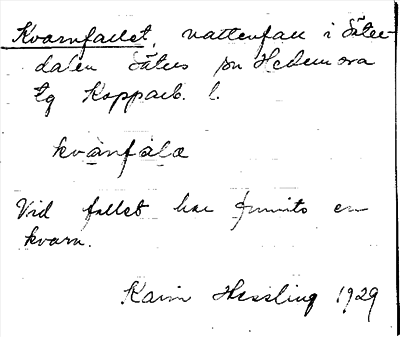 Kvarnfallet, vattenfall i Säter-
dalen Säters sn Hedemora
tg Kopparb. l.
kvànfàlə
Vid fallet har funnits en
kvarn.
Karin Hessling 1929